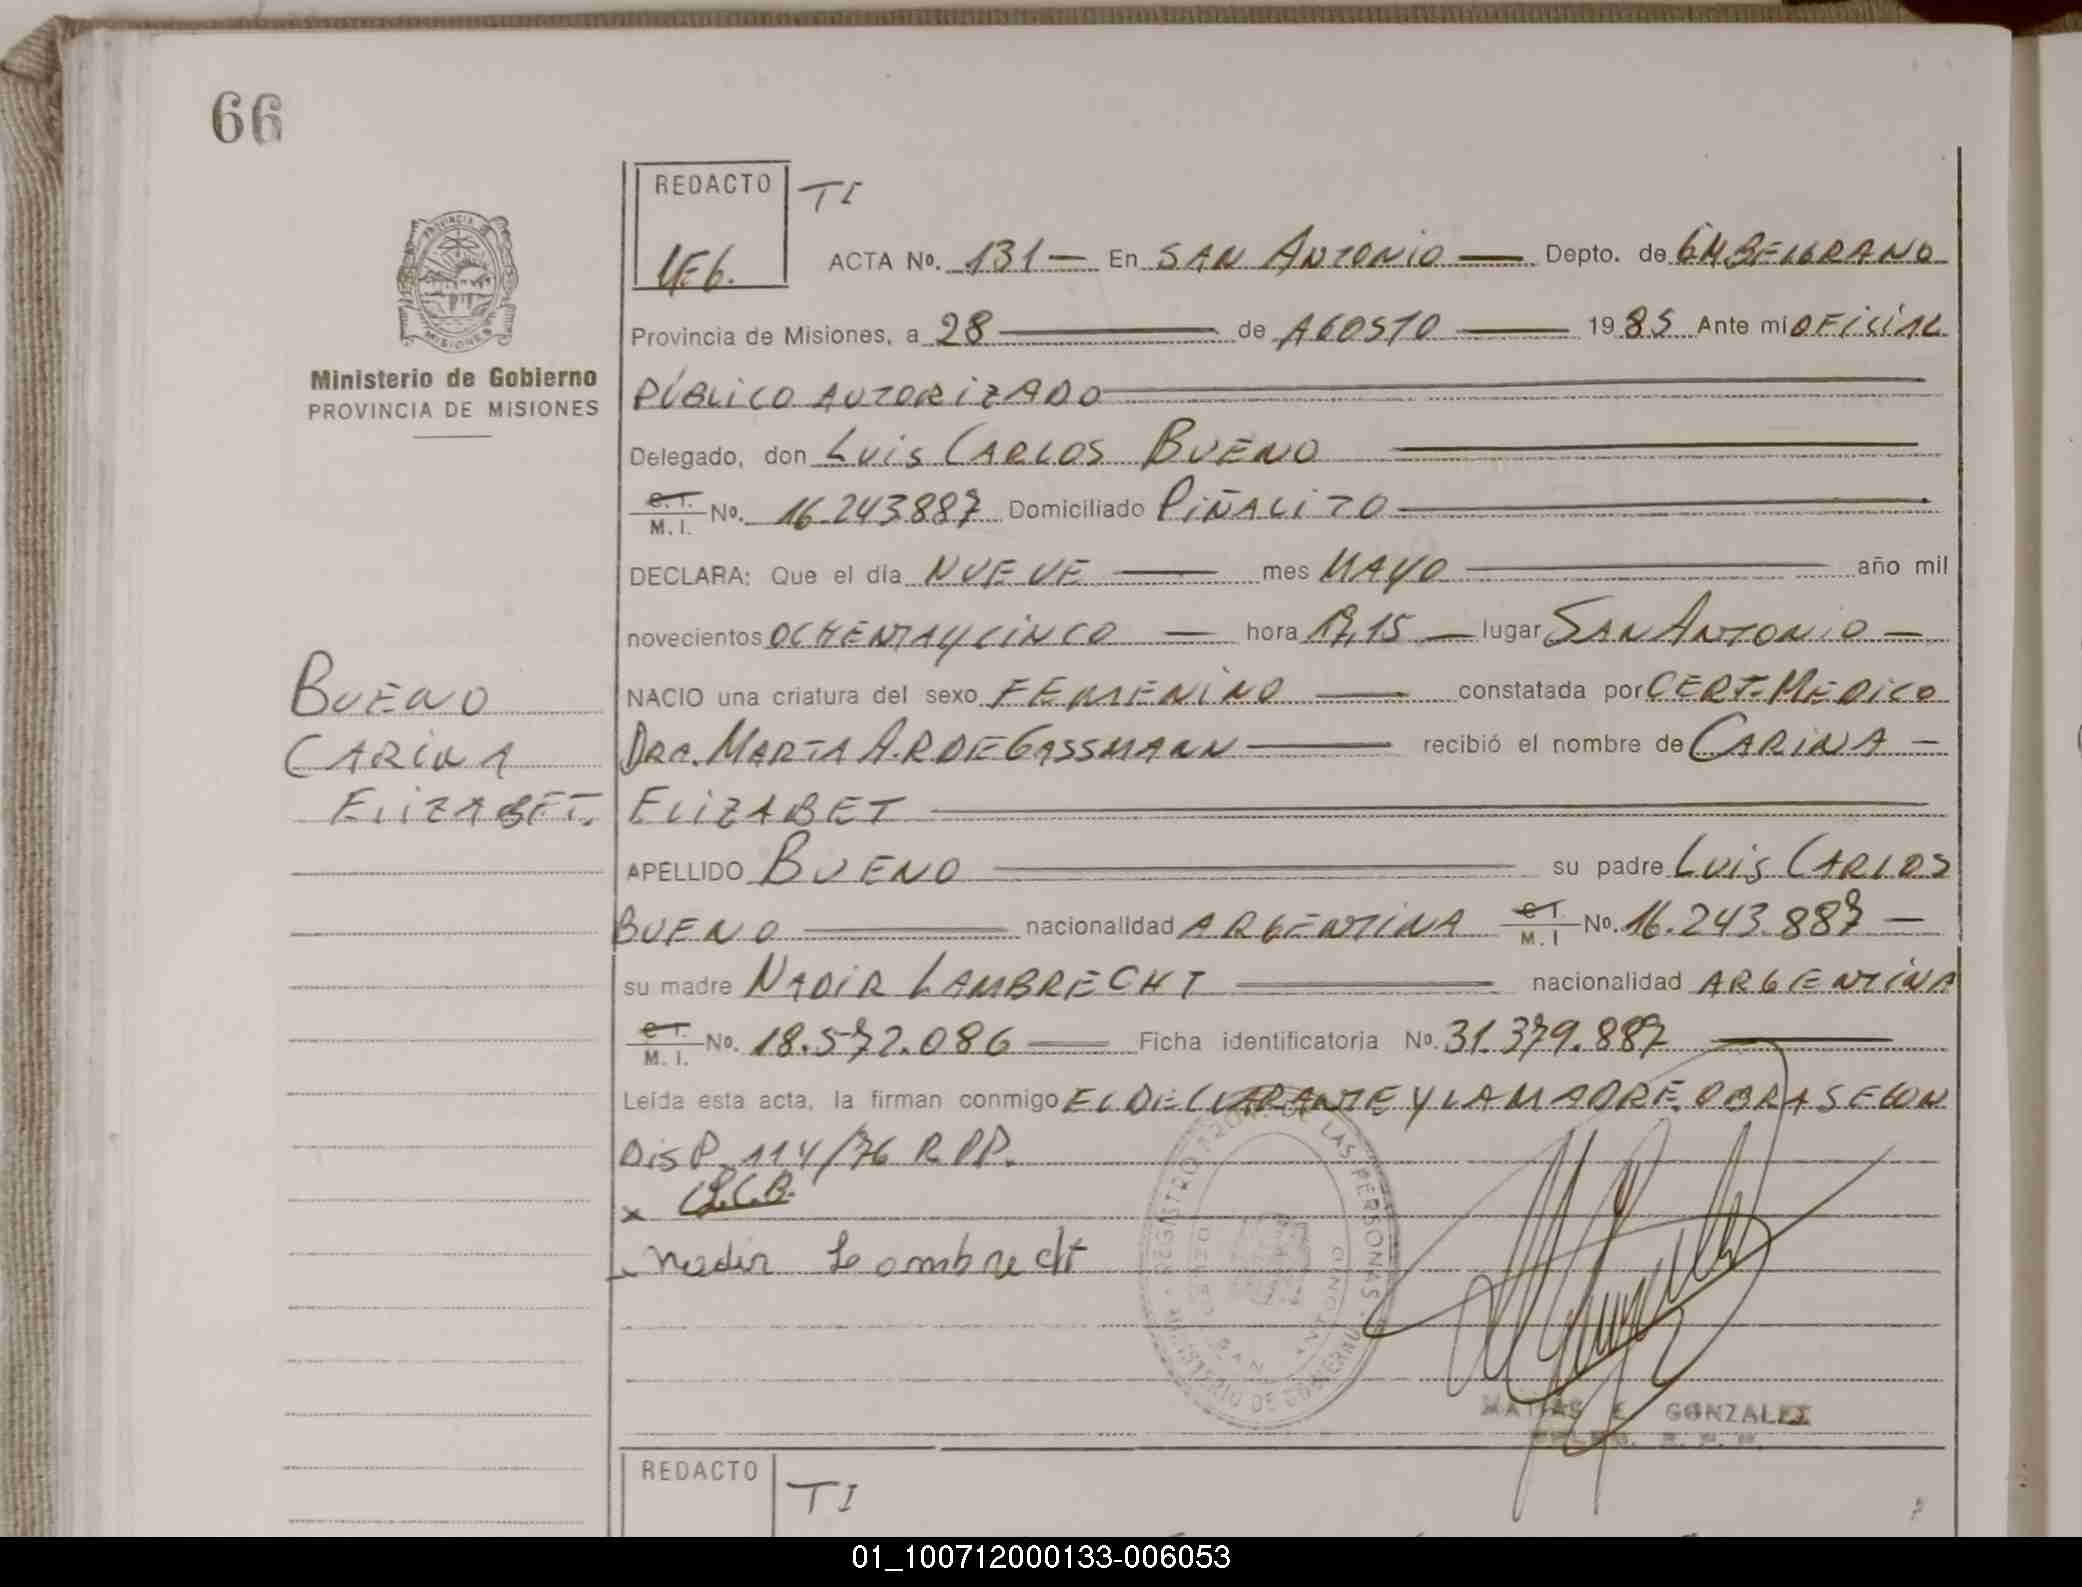 66
REDACTO
TI
ACTA No. 131 — En SAN ANTONIO — Depto. de GM BELGRANO
PROVINCIA
MISIONES
Provincia de Misiones, a 28 — de AGOSTO — 1985 Ante mi OFICIAL
Ministerio de Gobierno
PROVINCIA DE MISIONES
PÚBLICO AUTORIZADO
Delegado, don LUIS CARLOS BUENO
C.I. M.I. No. 16.243.887 Domiciliado PIÑALITO
DECLARA: Que el día NUEVE — mes MAYO — año mil
novecientos OCHENTA Y CINCO — hora 17,15 — lugar SAN ANTONIO —
NACIO una criatura del sexo FEMENINO — constatada por CERT. MEDICO
Dra. MARTA A. R DE GASSMANN — recibió el nombre de CARINA —
ELIZABET
BUENO
CARINA
ELIZABET.
APELLIDO BUENO — su padre LUIS CARLOS
BUENO — nacionalidad ARGENTINA C.I. M.I No. 16.243.887 —
su madre NADIR LAMBRECHT — nacionalidad ARGENTINA
C.I. M.I. No. 18.572.086 — Ficha identificatoria No. 31.379.887
Leída esta acta, la firman conmigo EL DECLARANTE Y LA MADRE. OBRA SEGUN
DISP. 114/76 R.P.P.
x L.C.B.
Nadir Lambrecht
REGISTRO DE LAS PERSONAS
MINISTERIO DE GOBIERNO
SAN ANTONIO
MATIAS E. GONZALEZ
REDACTO
TI
01_100712000133-006053